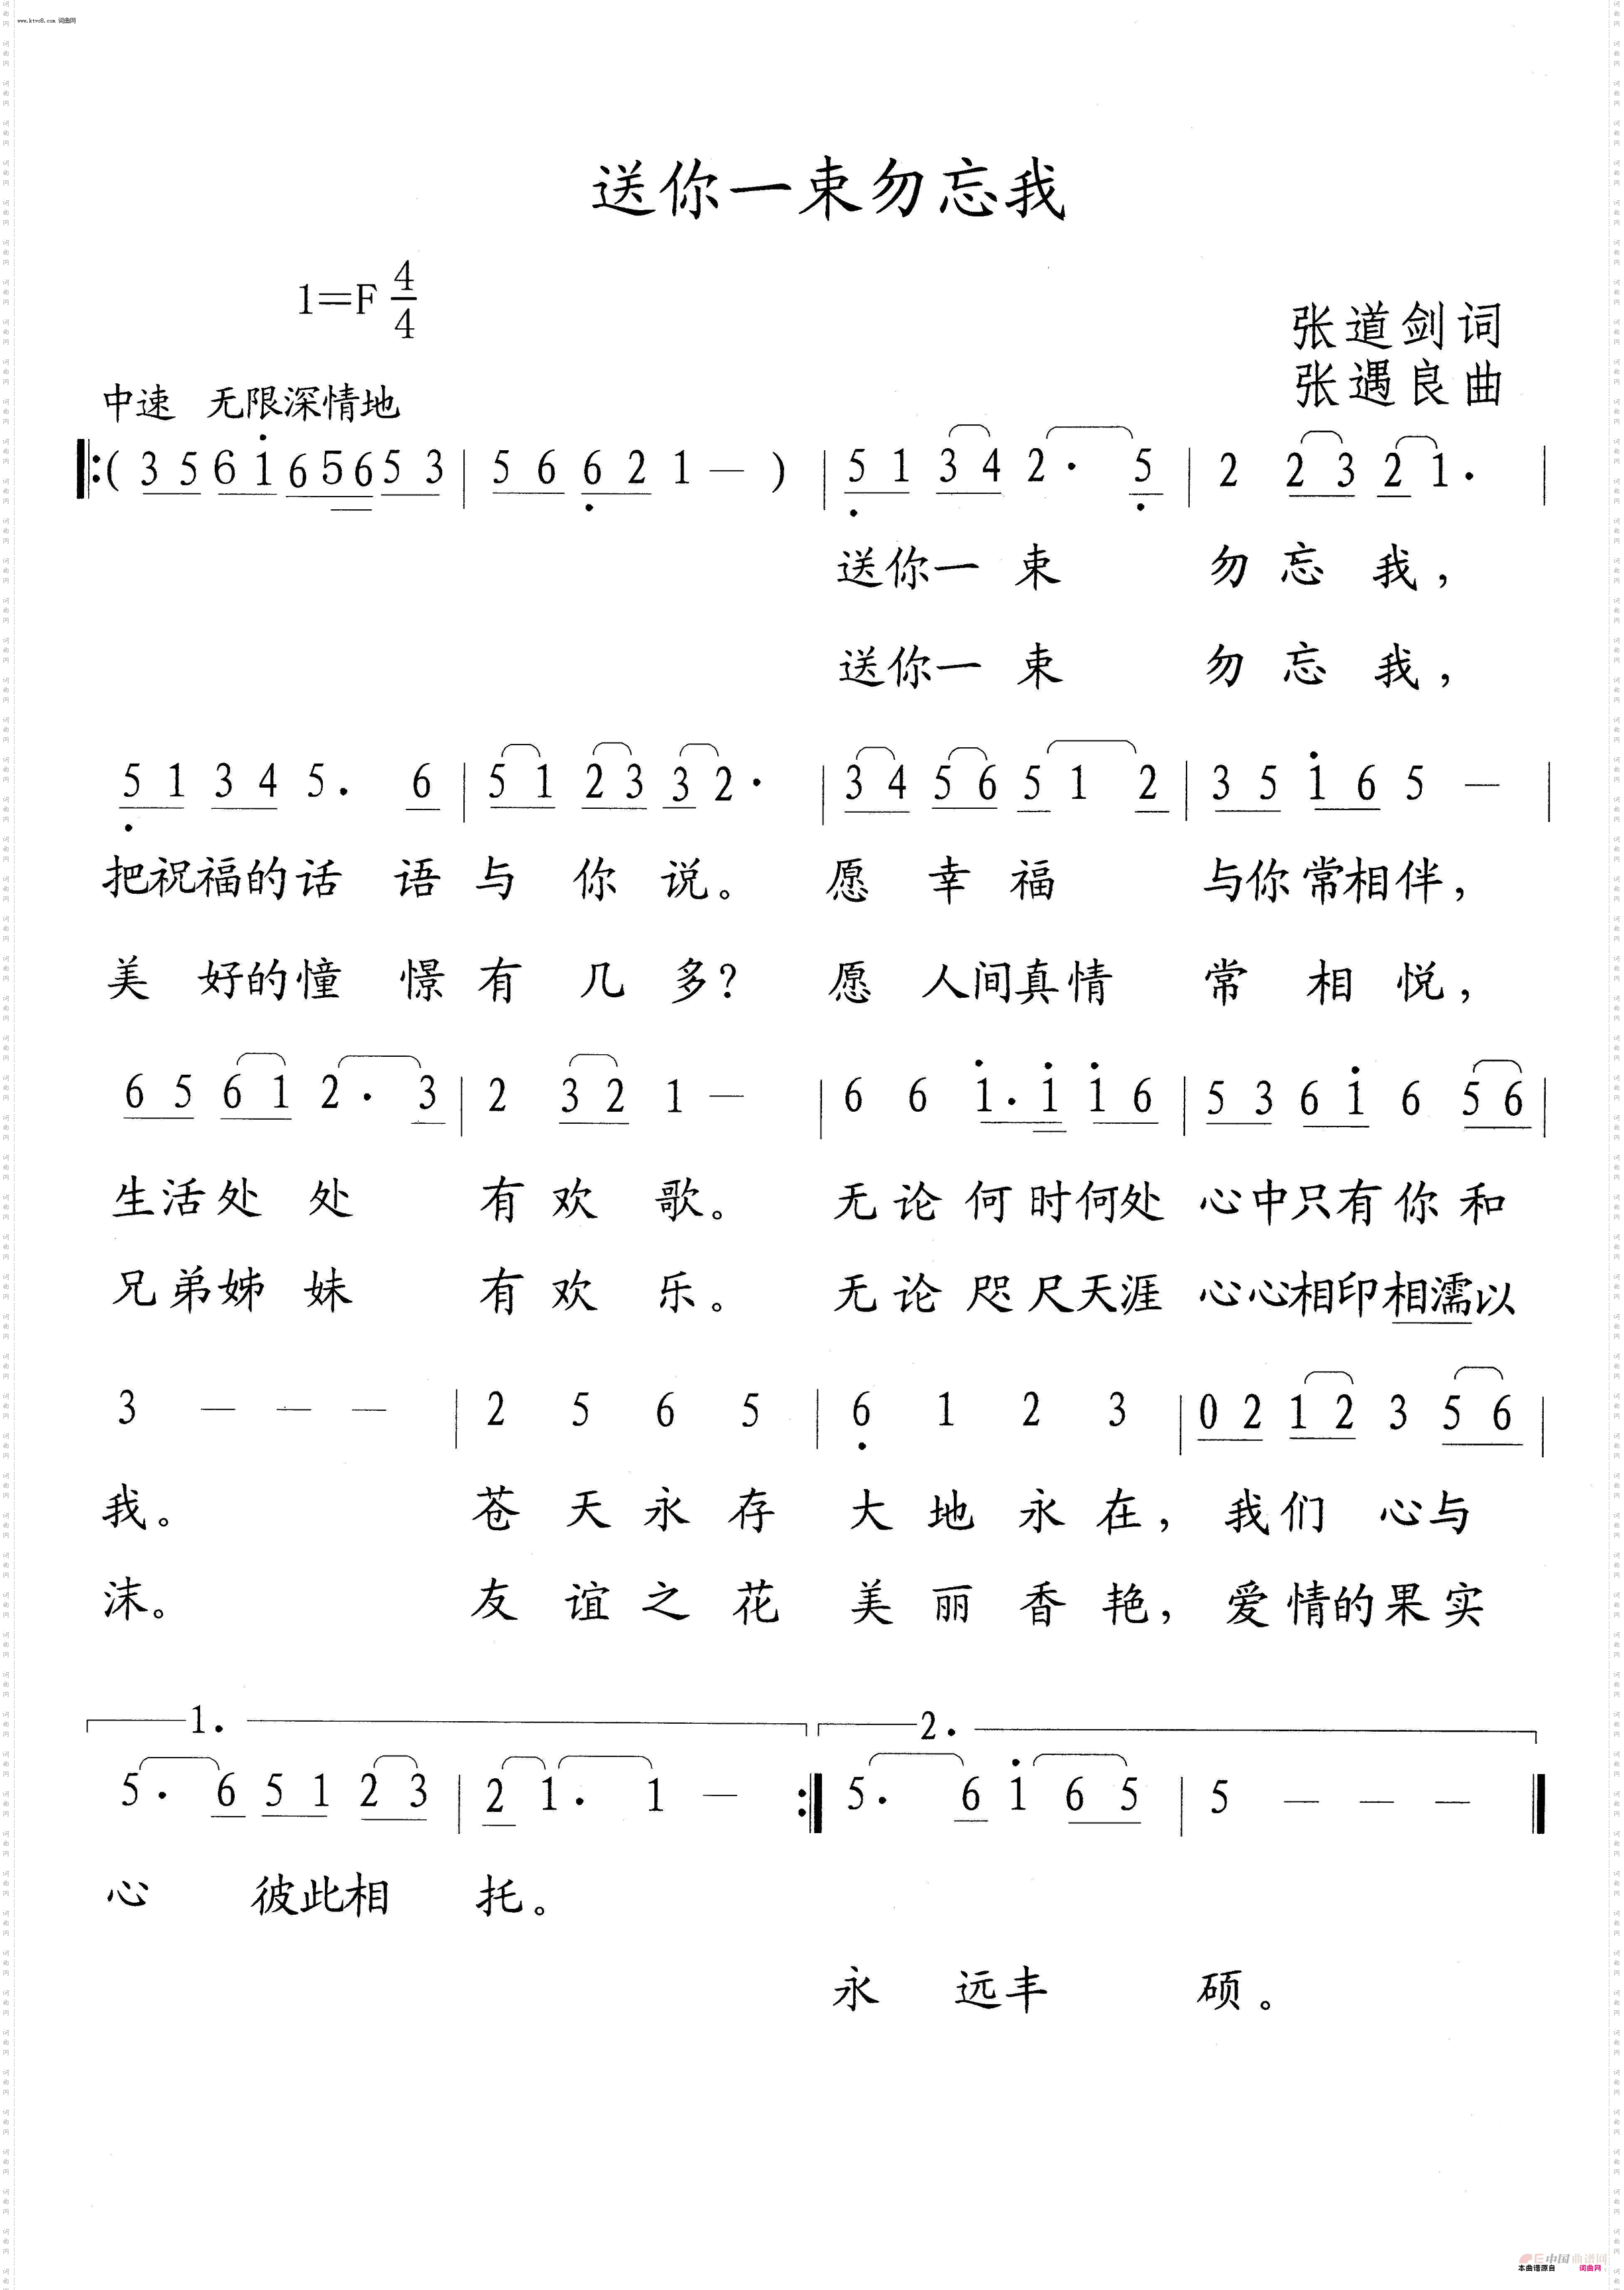 www.ktvc8.com 词曲网
送你一束勿忘我
1=F 4/4
张道剑词
中速 无限深情地
张遇良曲
( 3 5 6 1 6 5 6 5 3 | 5 6 6 2 1 — ) | 5 1 3 4 2 · 5 | 2 2 3 2 1 · |
送你一 束 勿 忘 我，
送你一 束 勿 忘 我，
5 1 3 4 5 · 6 | 5 1 2 3 3 2 · | 3 4 5 6 5 1 2 | 3 5 1 6 5 — |
把祝福的话 语 与 你 说。 愿 幸 福 与你常相伴，
美 好的憧 憬 有 几 多？ 愿 人间真情 常 相 悦，
6 5 6 1 2 · 3 | 2 3 2 1 — | 6 6 1 · 1 1 6 | 5 3 6 1 6 5 6 |
生活处 处 有 欢 歌。 无 论 何 时何处 心中只有你 和
兄弟姊 妹 有 欢 乐。 无 论 咫 尺天涯 心心相印相濡以
3 — — — | 2 5 6 5 | 6 1 2 3 | 0 2 1 2 3 5 6 |
我。 苍 天 永 存 大 地 永 在， 我们 心与
沫。 友 谊 之 花 美 丽 香 艳， 爱情的果实
1. 2.
5 · 6 5 1 2 3 | 2 1 · 1 — :| 5 · 6 1 6 5 | 5 — — — |
心 彼此相 托。
永 远丰 硕。
中国曲谱网
本曲谱源自 词曲网